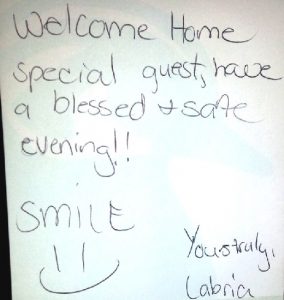 Welcome Home
special guest, have
a blessed & safe
evening!!
SMILE
Yourstruly,
Labria